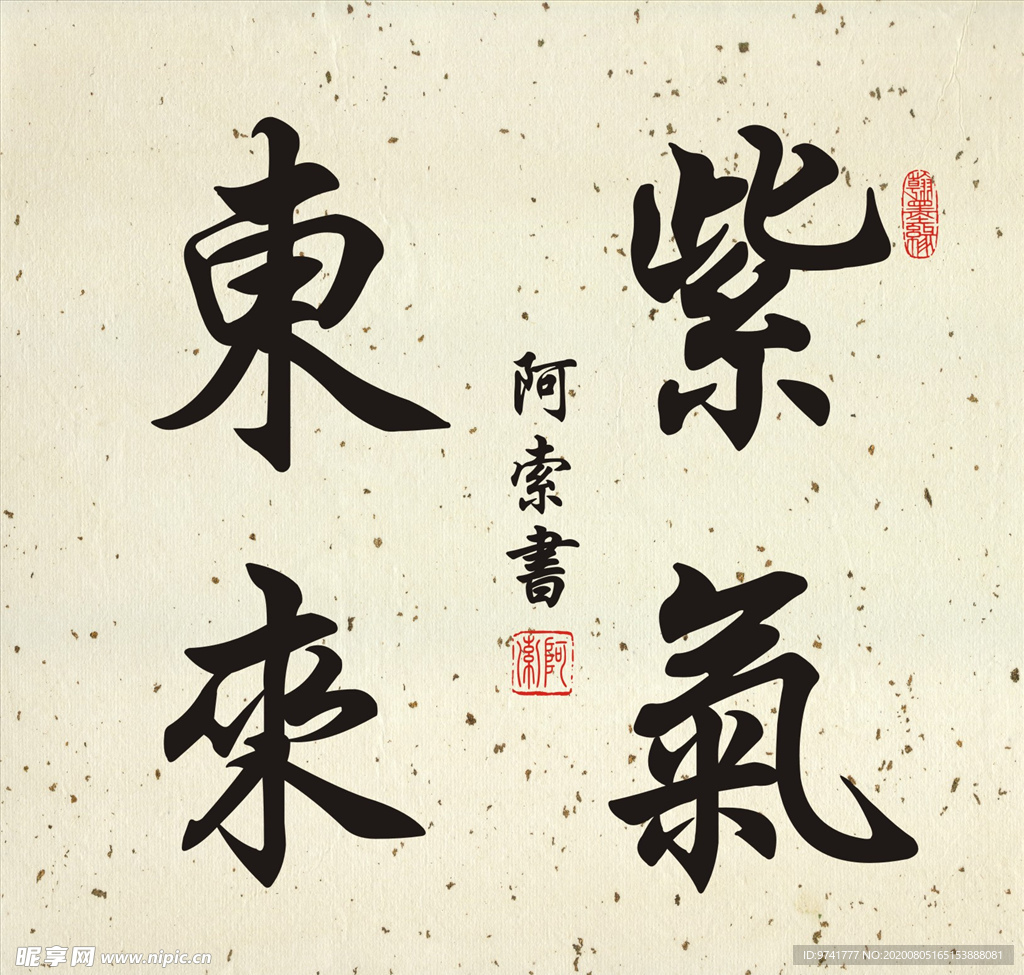 紫氣
東來
阿索書
翰墨緣
阿索
昵享网 www.nipic.cn
ID:9741777 NO:20200805165153888081